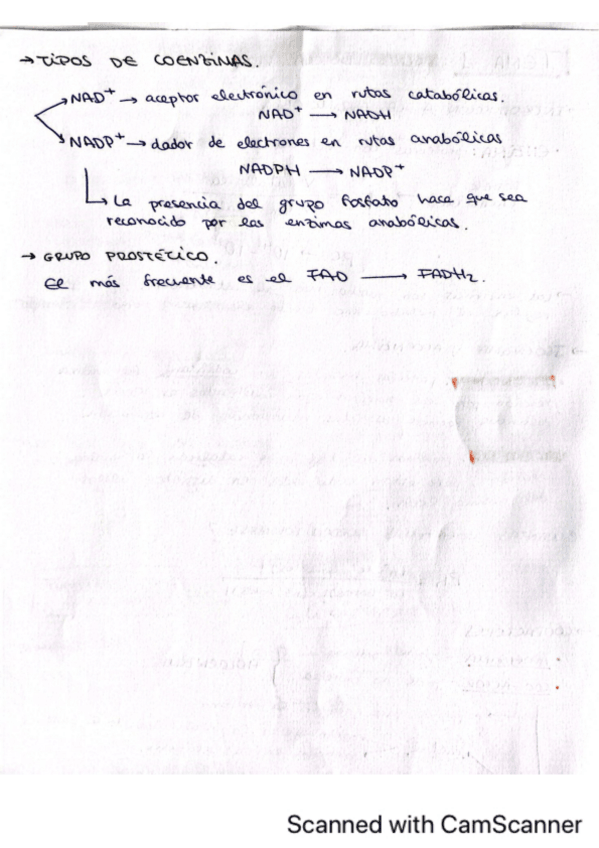 → TIPOS DE COENZIMAS.
→ NAD⁺ → aceptor electrónico en rutas catabólicas.
NAD⁺ → NADH
→ NADP⁺ → dador de electrones en rutas anabólicas
NADPH → NADP⁺
→ La presencia del grupo fosfato hace que sea
reconocido por las enzimas anabólicas.
→ GRUPO PROSTÉTICO.
El más frecuente es el FAD → FADH₂.
Scanned with CamScanner